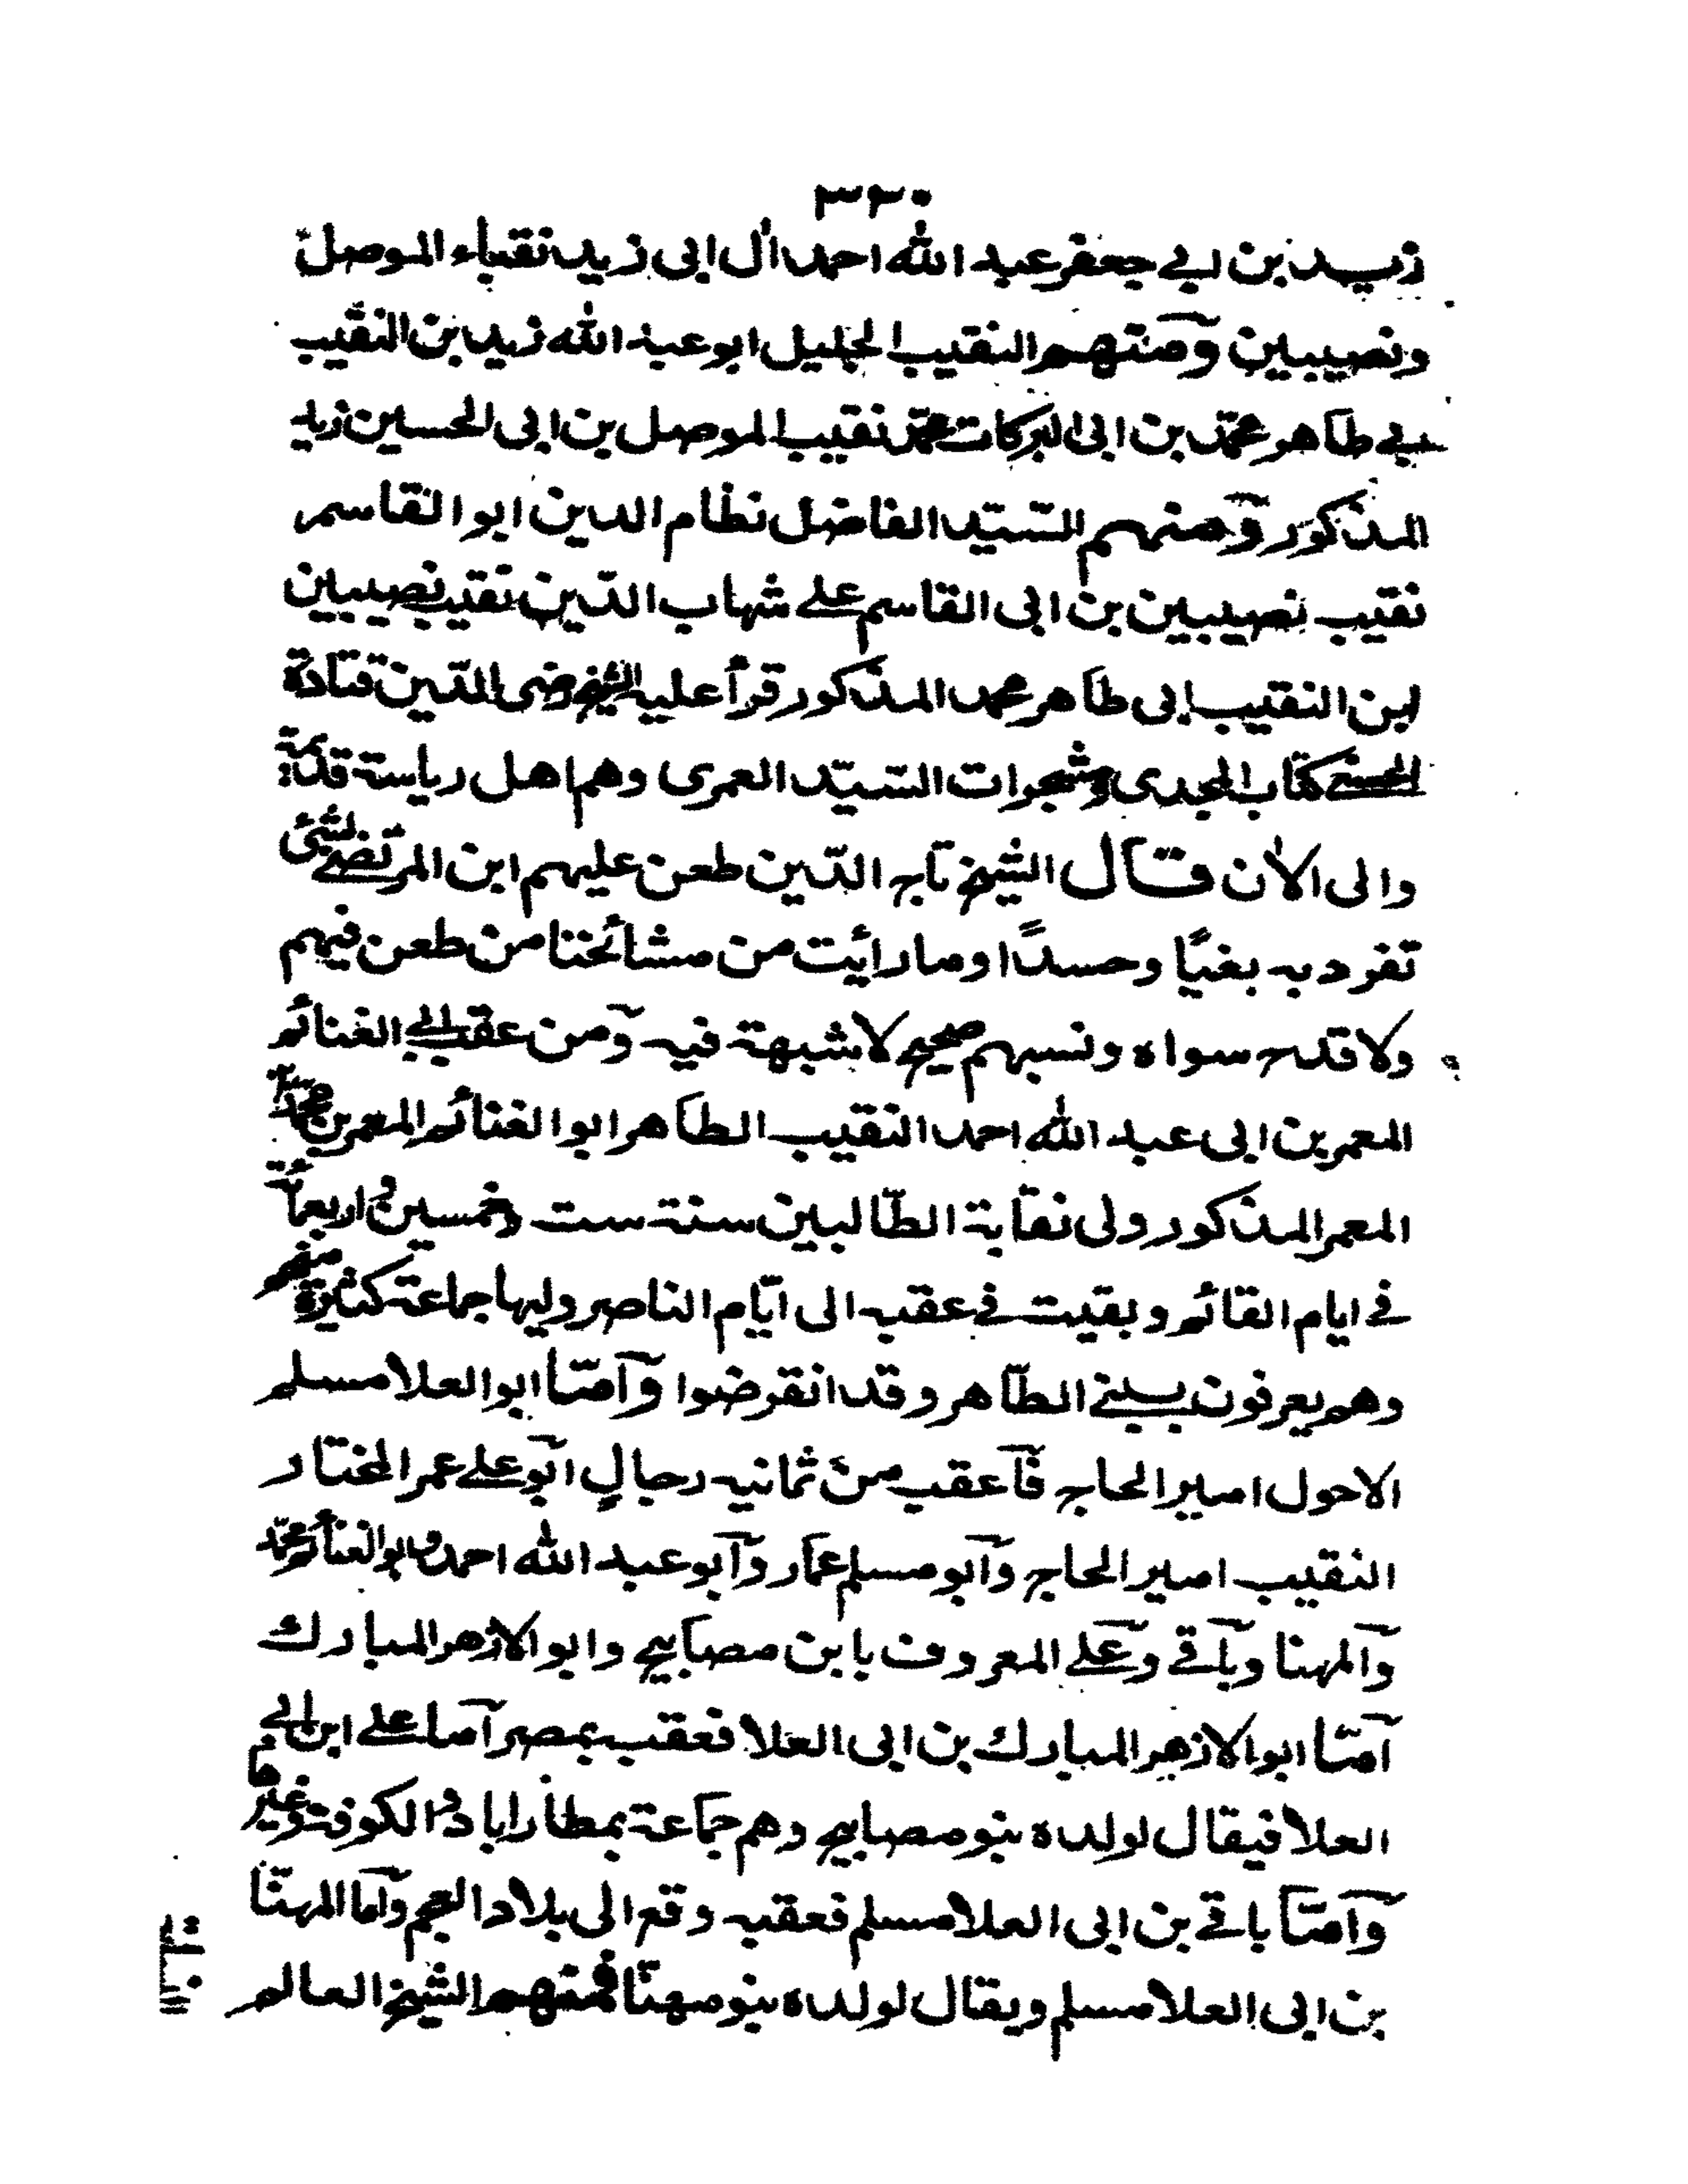 ٣٢٠
زيد بن ابي جعفر عبد الله احمد ال ابى زيد نقباء الموصل
ونصيبين ومنهم النقيب الجليل ابو عبد الله زيد بن النقيب
ابي طاهر محمّد بن ابى البركات محمّد نقيب الموصل بن ابى الحسين زيد
المذكور ومنهم السّيّد الفاضل نظام الدين ابو القاسم
نقيب نصيبين بن ابى القاسم علي شهاب الدّين نقيب نصيبين
ابن النقيب ابى طاهر محمد المذكور قرأ عليه الشيخ رضى الدّين قتادة
الحسني كتاب المجدى ومشجرات السّيّد العمرى وهم اهل رياسة قديمة
والى الأن قال الشيخ تاج الدّين طعن عليهم ابن المرتضى بشئ
تفرد به بغيًا وحسدًا وما رائت من مشائخنا من طعن فيهم
ولا قدح سواه ونسبهم صحيح لا شبهة فيه ومن عقب ابي الغنائم
المعمر بن ابى عبد الله احمد النقيب الطاهر ابو الغنائم المعمر بن محمّد بن
المعمر المذكور ولى نقابة الطّالبين سنة ست وخمسين واربعمائة
في ايام القائم وبقيت في عقبه الى ايّام الناصر وليها جماعة كثيرة منهم
وهم يعرفون ببني الطّاهر وقد انقرضوا وامّا ابو العلا مسلم
الاحول امير الحاج فاعقب من ثمانيه رجالٍ ابو علي عمر المختار
النقيب امير الحاج وابو مسلم عمّار وابو عبد الله احمد وابو الغنائم محمّد
والمهنا وباقي وعلي المعروف بابن مصابيح وابو الازهر المبارك
امّا ابو الازهر المبارك بن ابى العلا فعقب بمصر اما علي ابن ابي
العلا فيقال لولده بنو مصابيح وهم جماعة بمطاراباد والكوفة وغيرها
وامّا باقي بن ابى العلا مسلم فعقبه وقع الى بلاد العجم واما المهنّا
بن ابى العلا مسلم ويقال لولده بنو مهنّا فمنهم الشيخ العالم